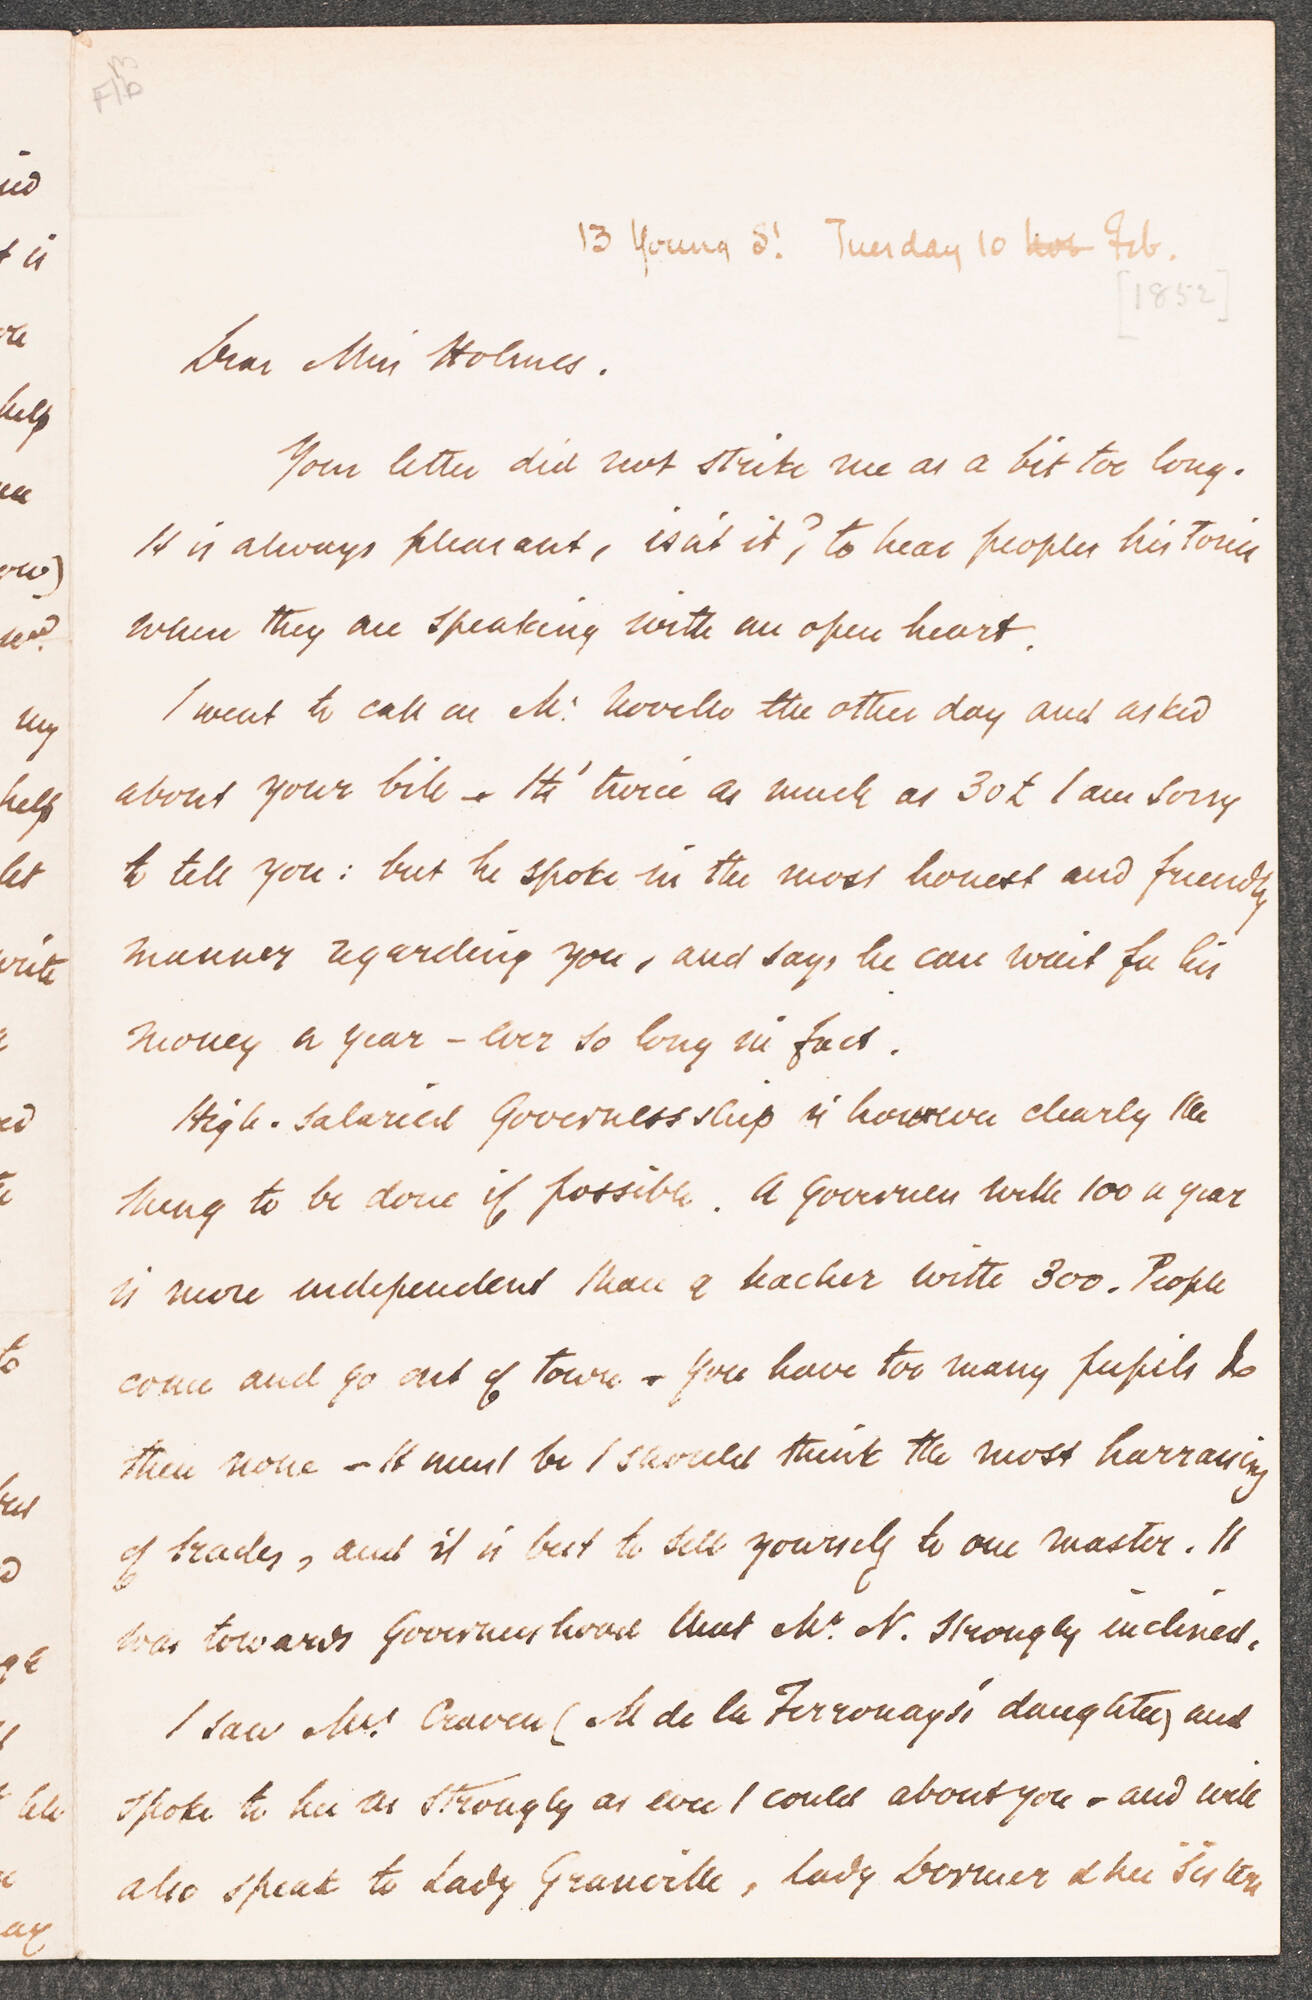 13 Young St. Tuesday 10 Nov Feb.
[1852]
Dear Miss Holmes.
Your letter did not strike me as a bit too long.
It is always pleasant, isn't it? to hear peoples histories
when they are speaking with an open heart.
I went to call on Mr. Novello the other day and asked
about your bill - Its' twice as much as 30£ I am sorry
to tell you: but he spoke in the most honest and friendly
manner regarding you, and says he can wait for his
money a year - ever so long in fact.
High-salaried Governessship is however clearly the
thing to be done if possible. A Governess with 100 a year
is more independent than a teacher with 300. People
come and go out of town - You have too many pupils &
then none - It must be I should think the most harrassing
of trades, and it is best to sell yourself to one master. It
was towards Governesshood that Mr. N. strongly inclined.
I saw Mrs. Craven (M de la Ferronays's daughter) and
spoke to her as strongly as ever I could about you - and will
also speak to Lady Granville, Lady Dormer & her sisters
my
help
write
to